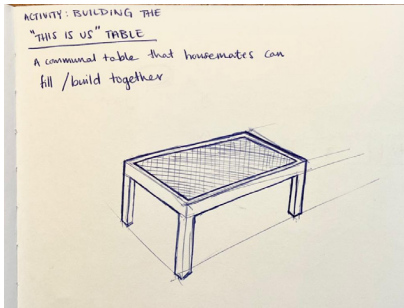 ACTIVITY: BUILDING THE
"THIS IS US" TABLE
A communal table that housemates can
fill / build together